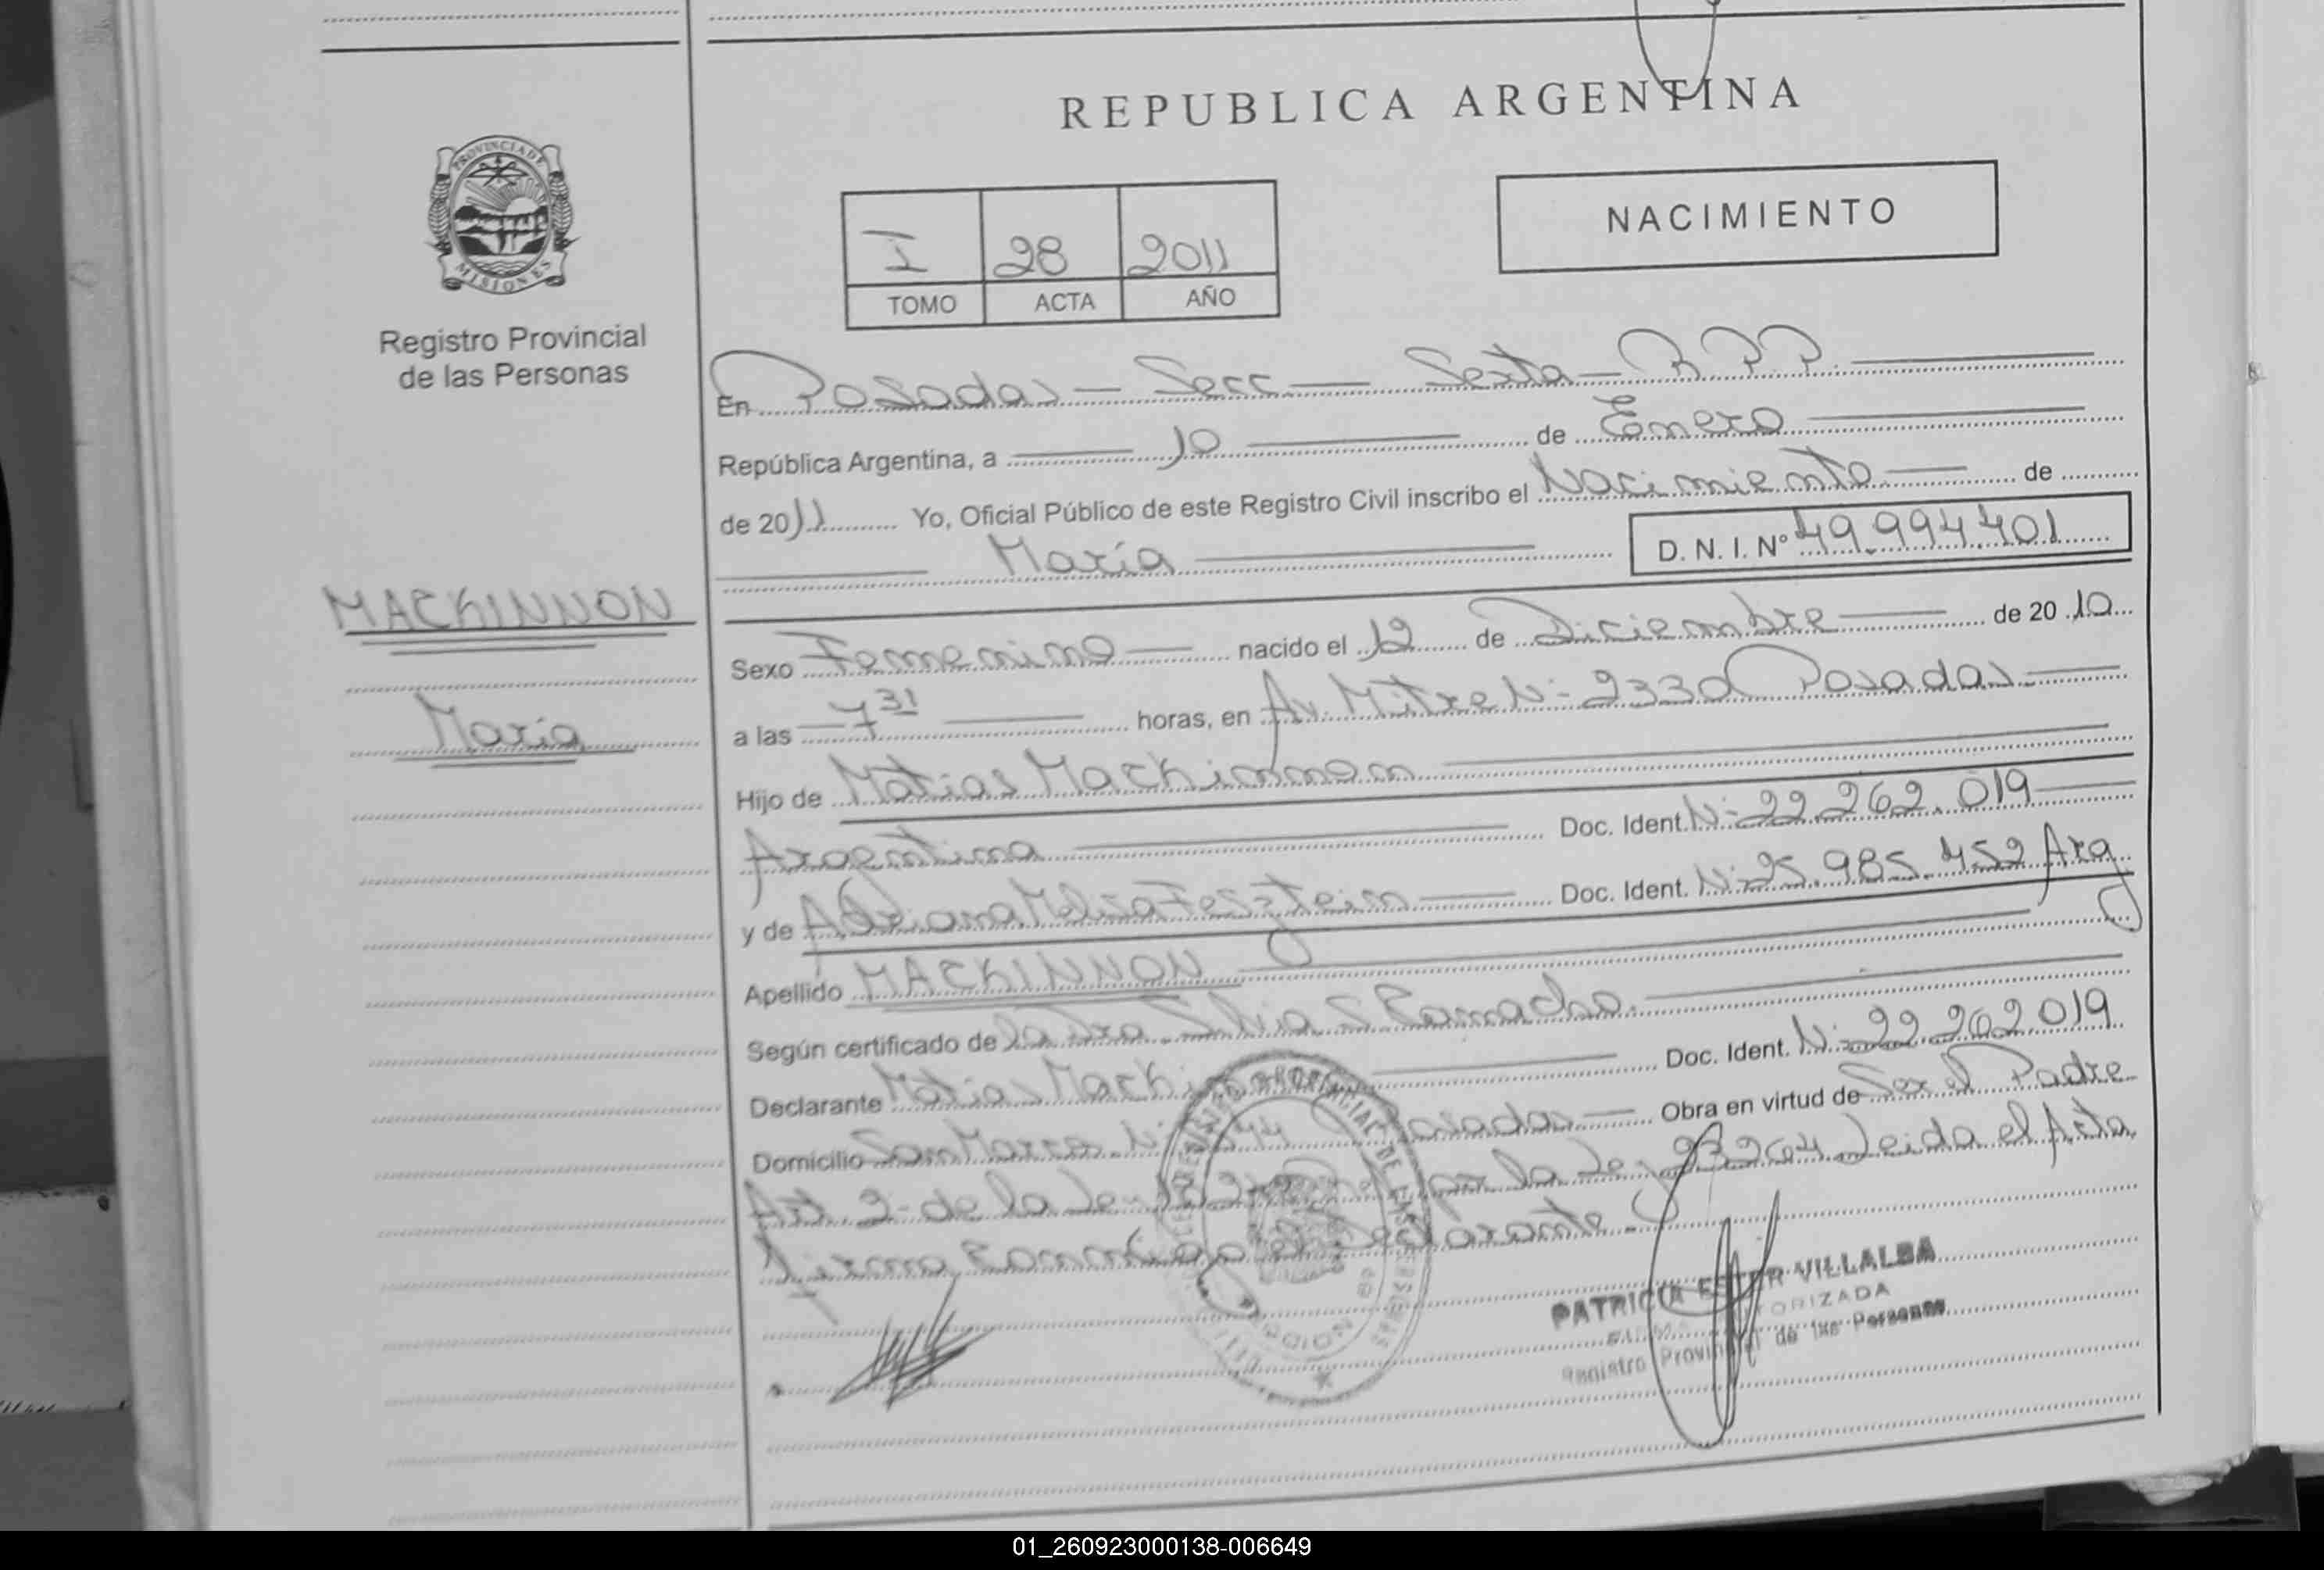 REPUBLICA ARGENTINA
PROVINCIA DE
MISIONES
Registro Provincial
de las Personas
NACIMIENTO
I 28 2011
TOMO ACTA AÑO
En Posadas - Secc - Sexta - R.P.P.
República Argentina, a 10 de Enero
de 2011 Yo, Oficial Público de este Registro Civil inscribo el Nacimiento de
María D. N. I. Nº 49.994.401
MACKINNON
María
Sexo Femenino nacido el 12 de Diciembre de 2010
a las 7 31 horas, en Av. Mitre Nº 2330 Posadas
Hijo de Matias Mackinnon
Argentina Doc. Ident. Nº 22.262.019
y de Doc. Ident. Nº 25.985.452 Arg
Apellido MACKINNON
Según certificado de
Declarante Matias Doc. Ident. Nº 22.262.019
Domicilio Posadas Obra en virtud de Ser el Padre
Art. 2 de la Ley por la Ley 23264 Leida el Acta
PATRICIA ESTER VILLALBA
AUTORIZADA
Registro Provincial de las Personas
01_260923000138-006649